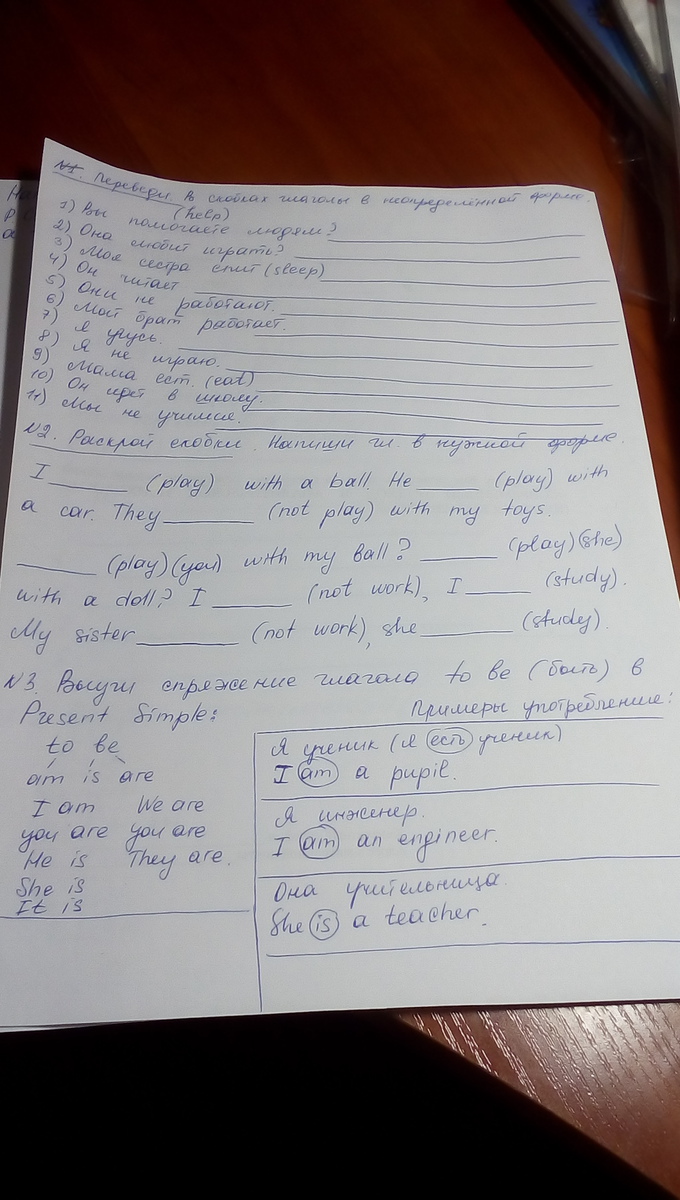 №1. Переведи. В скобках глаголы в неопределённой форме.
(help)
1) Вы помогаете людям?
2) Она любит играть?
3) Моя сестра спит (sleep)
4) Он читает
5) Они не работают.
6) Мой брат работает.
7) Я учусь.
8) Я не играю.
9) Мама ест. (eat)
10) Он идёт в школу.
11) Мы не учимся.
№2. Раскрой скобки. Напиши гл. в нужной форме.
I ______ (play) with a ball. He ______ (play) with
a car. They ______ (not play) with my toys.
______ (play) (you) with my ball? ______ (play) (she)
with a doll? I ______ (not work), I ______ (study).
My sister ______ (not work), she ______ (study).
№3. Выучи спряжение глагола to be (быть) в
Present Simple:
to be
am is are
I am We are
you are you are
He is They are.
She is
It is
Примеры употребления:
Я ученик (Я есть ученик)
I am a pupil.
Я инженер.
I am an engineer.
Она учительница.
She is a teacher.